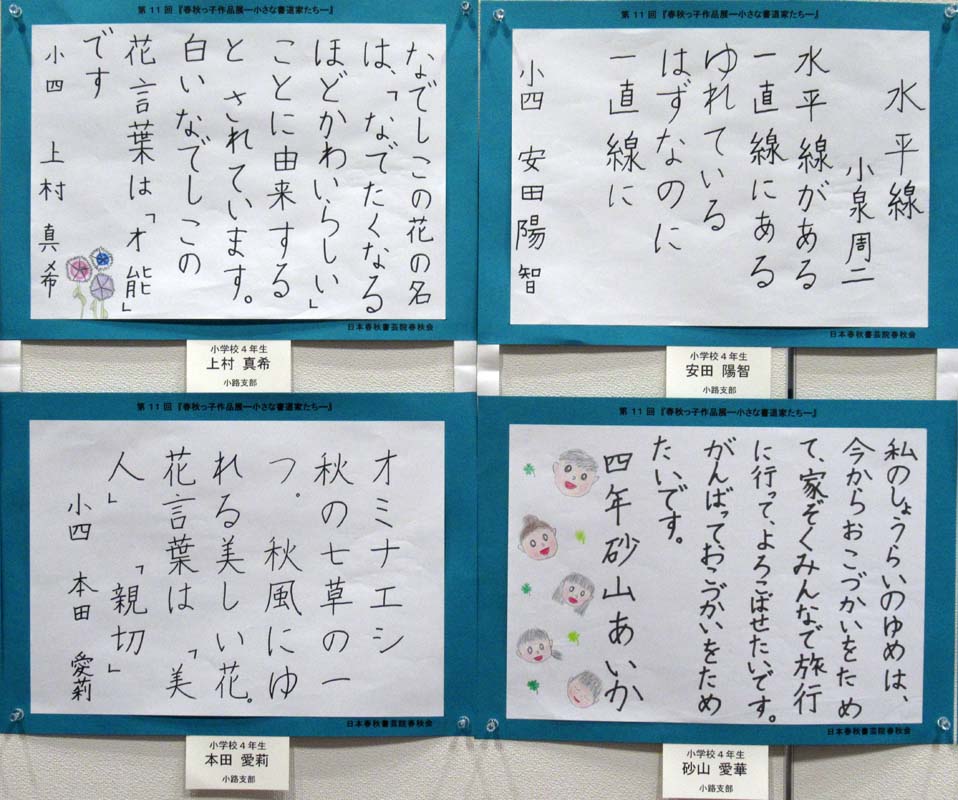 第11回『春秋っ子作品展―小さな書道家たち―』
なでしこの花の名
は、「なでたくなる
ほどかわいらしい」
ことに由来する
とされています。
白いなでしこの
花言葉は「才能」
です
小四 上村真希
日本春秋書芸院春秋会
小学校4年生
上村 真希
小路支部
第11回『春秋っ子作品展―小さな書道家たち―』
水平線
小泉周二
水平線がある
一直線にある
ゆれている
はずなのに
一直線に
小四 安田陽智
日本春秋書芸院春秋会
小学校4年生
安田 陽智
小路支部
第11回『春秋っ子作品展―小さな書道家たち―』
オミナエシ
秋の七草の一
つ。秋風にゆ
れる美しい花。
花言葉は「美
人」「親切」
小四 本田愛莉
日本春秋書芸院春秋会
小学校4年生
本田 愛莉
小路支部
第11回『春秋っ子作品展―小さな書道家たち―』
私のしょうらいのゆめは、
今からおこづかいをため
て、家ぞくみんなで旅行
に行って、よろこばせたいです。
がんばっておこづかいをため
たいです。
四年砂山あいか
日本春秋書芸院春秋会
小学校4年生
砂山 愛華
小路支部